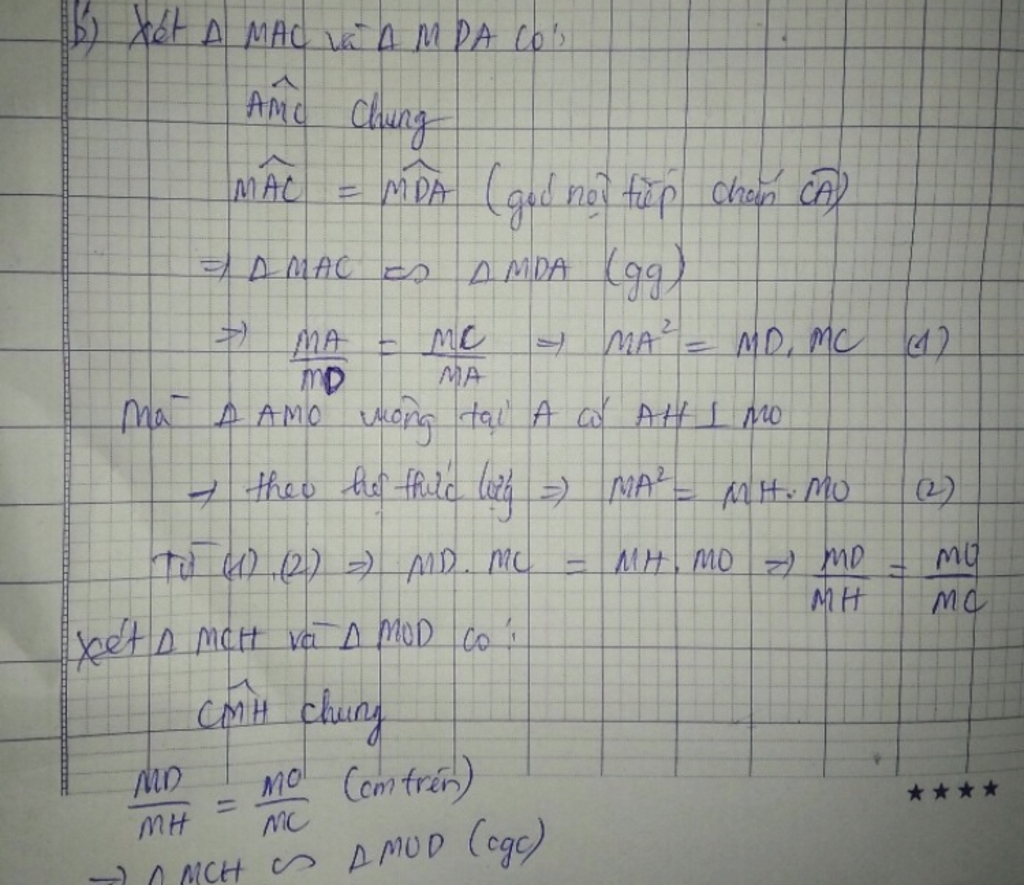 b) Xét Δ MAC và Δ MDA có:
AMC chung
MAC = MDA (góc nội tiếp chắn CA)
=> Δ MAC ∽ Δ MDA (gg)
=> MA/MD = MC/MA => MA² = MD. MC (1)
Mà Δ AMO vuông tại A có AH ⊥ MO
→ theo hệ thức lượng => MA² = MH. MO (2)
Từ (1), (2) => MD. MC = MH. MO => MD/MH = MO/MC
Xét Δ MCH và Δ MOD có:
CMH chung
MD/MH = MO/MC (cm trên)
=> Δ MCH ∽ Δ MOD (cgc)